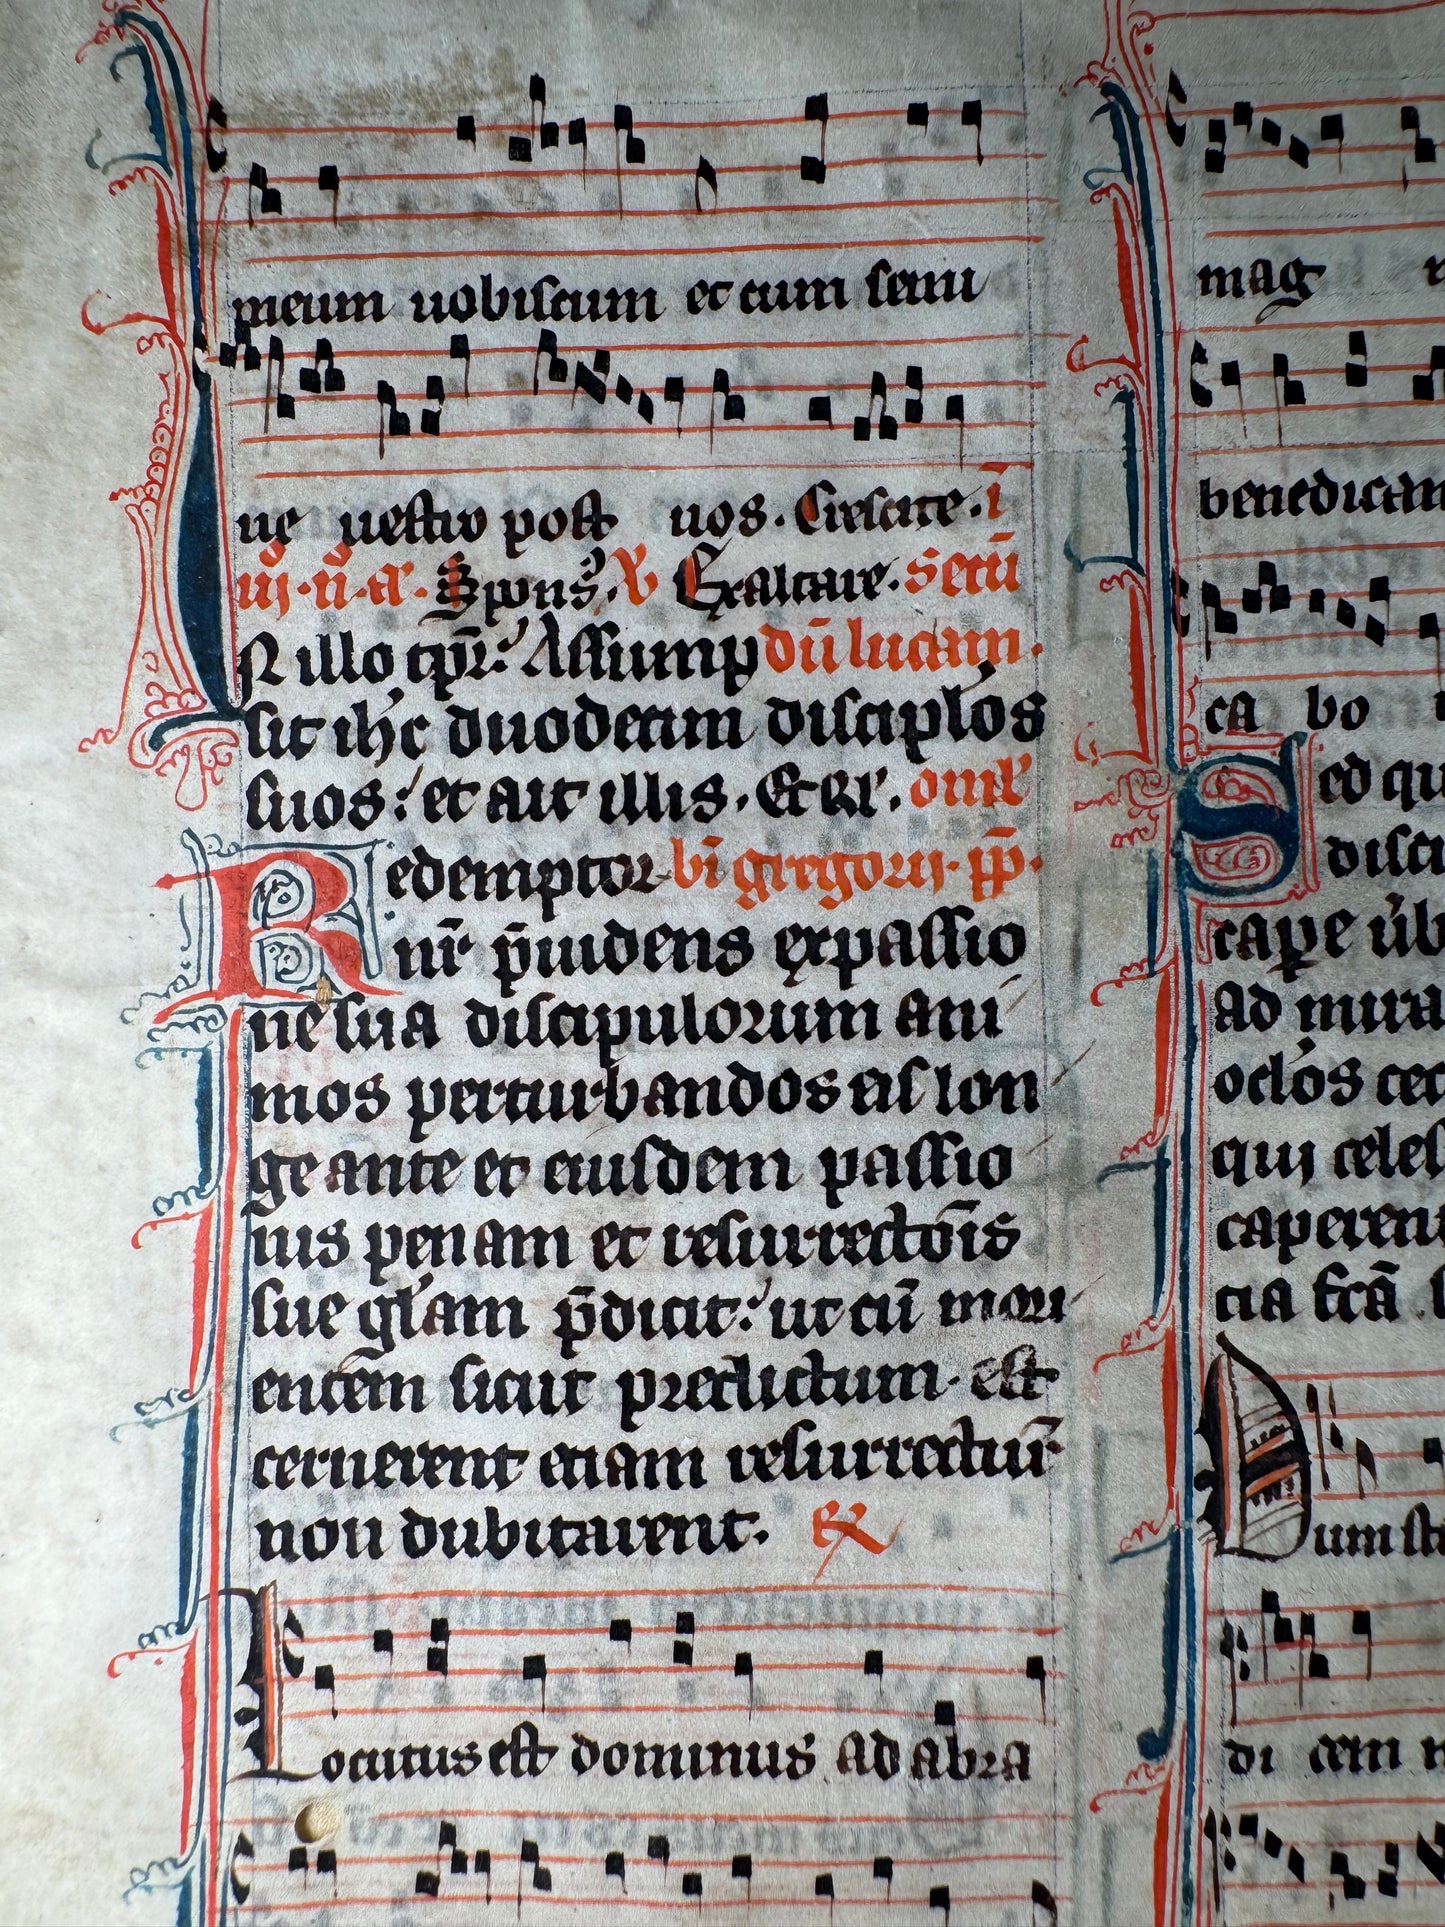 meum uobiscum et cum semi
ne uestro post uos. Crescite. i
iij. n̄. a. Spons. v Exaltare. Secū
N illo tp̄r: Assump dū lucam.
sit ih'c duodecim discip̄los
suos: et ait illis. Et Rl'. omel'
Redemptor bi gregorij. pp̄.
nr̄ p̄uidens ex passio
ne sua discipulorum ani
mos perturbandos eis lon
ge ante et eiusdem passio
nis penam et resurrectōis
sue gl'am p̄dicit: ut cū mori
entem sicut predictum est
cernerent etiam resurrectur̄
non dubitarent. R
Locutus est dominus ad abra
mag
benedicam
ca bo
Sed qu
disci
capē u'b
ad mira
oclōs cec
qui celes
caperent
tia fcā
Dum sta
di cem